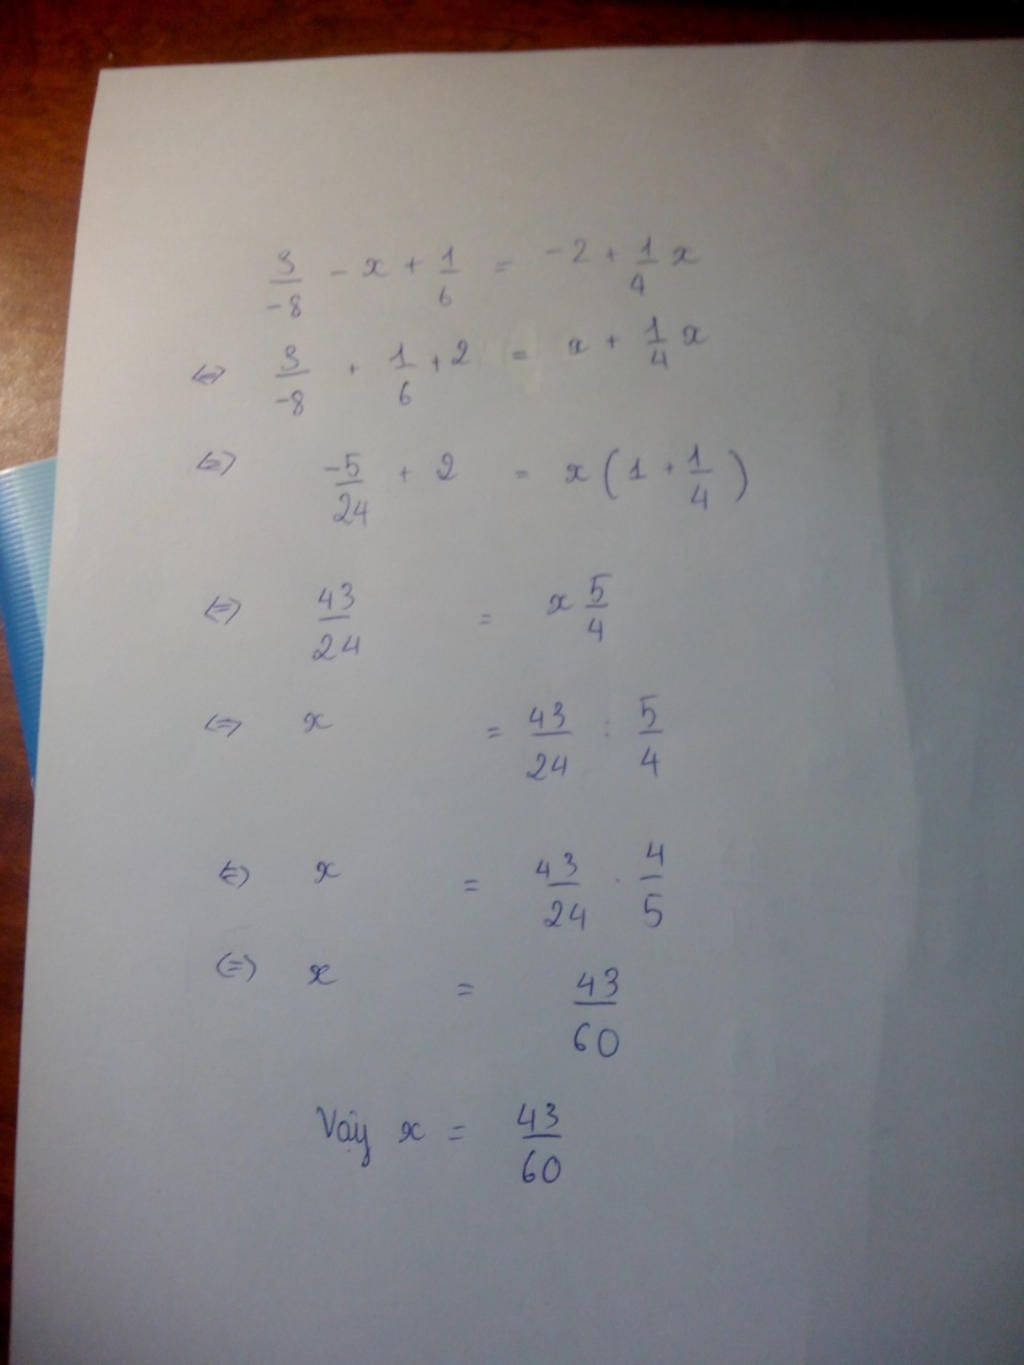 3/-8 - x + 1/6 = -2 + 1/4 x
<=> 3/-8 + 1/6 + 2 = x + 1/4 x
<=> -5/24 + 2 = x ( 1 + 1/4 )
<=> 43/24 = x 5/4
<=> x = 43/24 : 5/4
<=> x = 43/24 . 4/5
<=> x = 43/60
Vậy x = 43/60